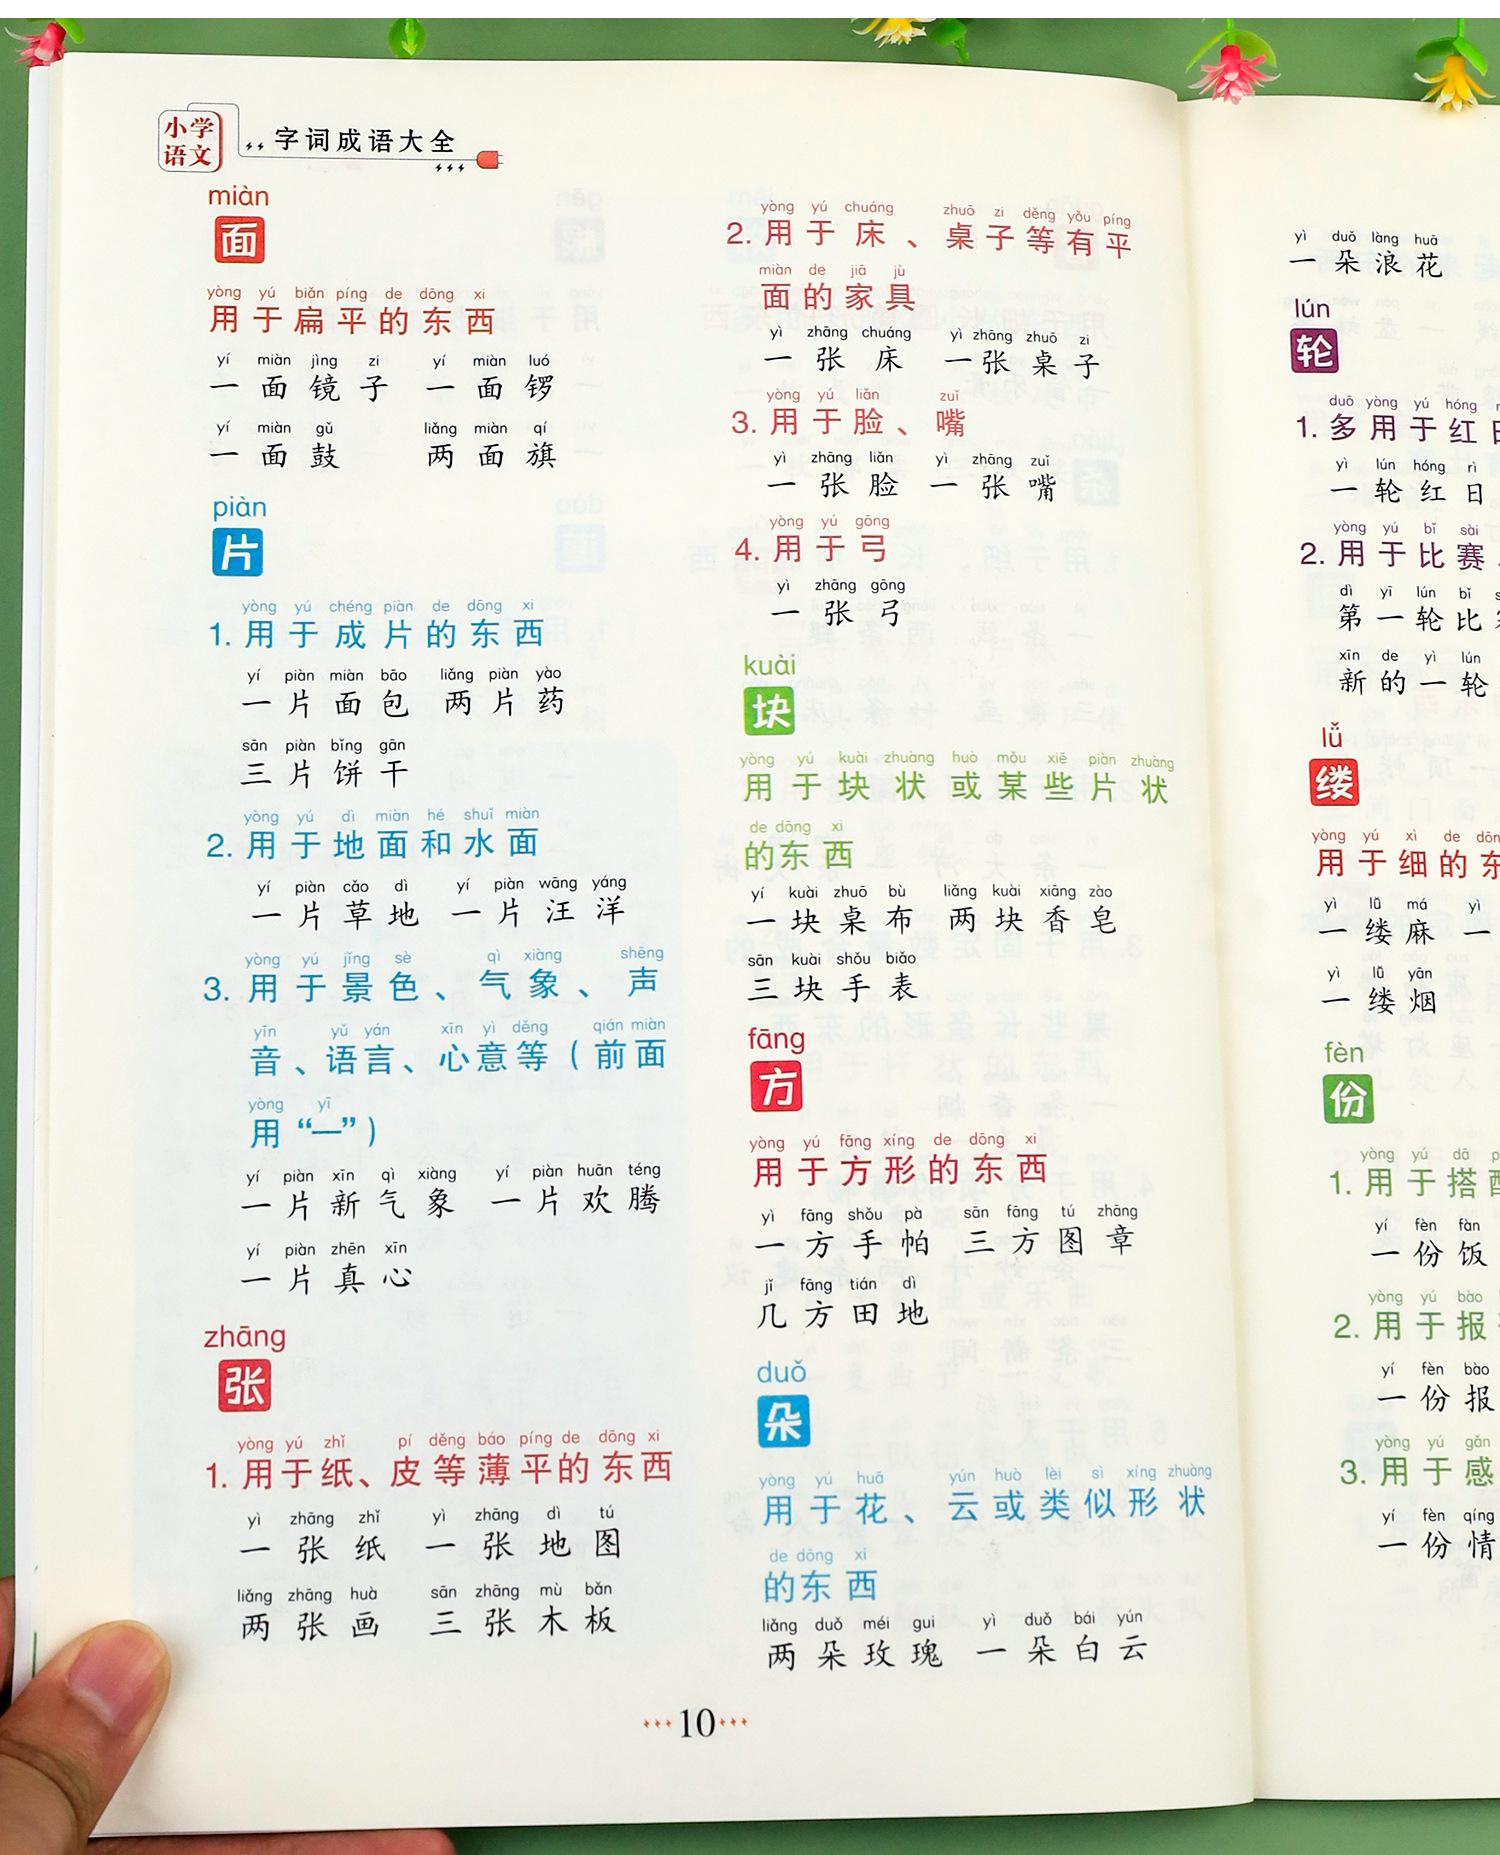 小学
语文
字词成语大全
miàn
面
yòng yú biǎn píng de dōng xi
用于扁平的东西
yí miàn jìng zi yí miàn luó
一面镜子 一面锣
yí miàn gǔ liǎng miàn qí
一面鼓 两面旗
piàn
片
yòng yú chéng piàn de dōng xi
1. 用于成片的东西
yí piàn miàn bāo liǎng piàn yào
一片面包 两片药
sān piàn bǐng gān
三片饼干
yòng yú dì miàn hé shuǐ miàn
2. 用于地面和水面
yí piàn cǎo dì yí piàn wāng yáng
一片草地 一片汪洋
yòng yú jǐng sè qì xiàng shēng
3. 用于景色、气象、声
yīn yǔ yán xīn yì děng qián miàn
音、语言、心意等（前面
yòng yī
用“一”）
yí piàn xīn qì xiàng yí piàn huān téng
一片新气象 一片欢腾
yí piàn zhēn xīn
一片真心
zhāng
张
yòng yú zhǐ pí děng báo píng de dōng xi
1. 用于纸、皮等薄平的东西
yì zhāng zhǐ yì zhāng dì tú
一张纸 一张地图
liǎng zhāng huà sān zhāng mù bǎn
两张画 三张木板
yòng yú chuáng zhuō zi děng yǒu píng
2. 用于床、桌子等有平
miàn de jiā jù
面的家具
yì zhāng chuáng yì zhāng zhuō zi
一张床 一张桌子
yòng yú liǎn zuǐ
3. 用于脸、嘴
yì zhāng liǎn yì zhāng zuǐ
一张脸 一张嘴
yòng yú gōng
4. 用于弓
yì zhāng gōng
一张弓
kuài
块
yòng yú kuài zhuàng huò mǒu xiē piàn zhuàng
用于块状或某些片状
de dōng xi
的东西
yí kuài zhuō bù liǎng kuài xiāng zào
一块桌布 两块香皂
sān kuài shǒu biǎo
三块手表
fāng
方
yòng yú fāng xíng de dōng xi
用于方形的东西
yì fāng shǒu pà sān fāng tú zhāng
一方手帕 三方图章
jǐ fāng tián dì
几方田地
duǒ
朵
yòng yú huā yún huò lèi sì xíng zhuàng
用于花、云或类似形状
de dōng xi
的东西
liǎng duǒ méi gui yì duǒ bái yún
两朵玫瑰 一朵白云
10
yì duǒ làng huā
一朵浪花
lún
轮
duō yòng yú hóng
1. 多用于红
yì lún hóng rì
一轮红日
yòng yú bǐ sài
2. 用于比赛
dì yī lún bǐ
第一轮比
xīn de yì lún
新的一轮
lǚ
缕
yòng yú xì de
用于细的
yì lǚ má yì
一缕麻 一
yì lǚ yān
一缕烟
fèn
份
yòng yú dā
1. 用于搭
yí fèn fàn
一份饭
yòng yú bào
2. 用于报
yí fèn bào
一份报
yòng yú gǎn
3. 用于感
yí fèn qíng
一份情